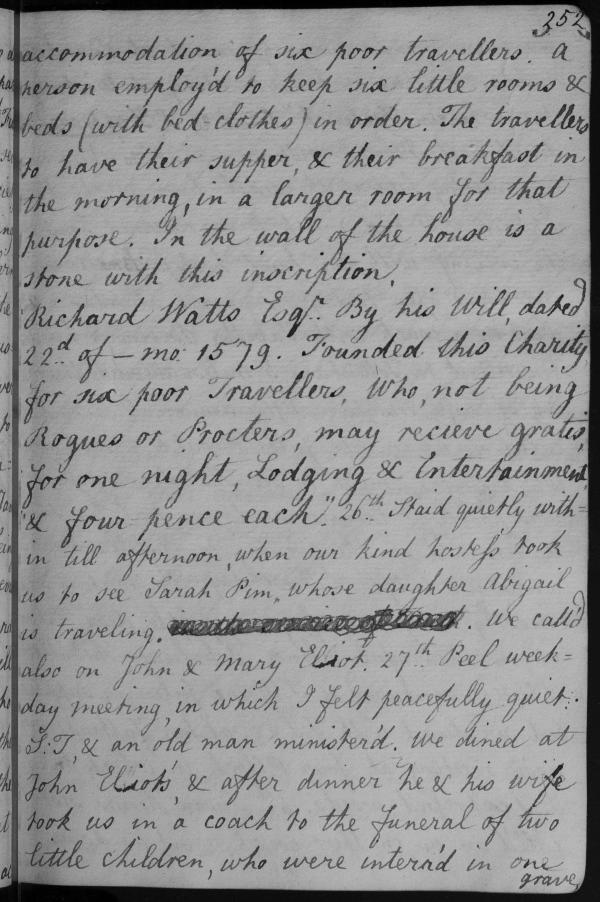 252
accommodation of six poor travellers. a
person employ'd to keep six little rooms &
beds (with bed-clothes) in order. The travellers
to have their supper, & their breakfast in
the morning, in a larger room for that
purpose. In the wall of the house is a
stone with this inscription.
"Richard Watts Esqr. By his Will, dated
22d of – mo: 1579. Founded this Charity
for six poor Travellers, Who, not being
Rogues or Procters, may recieve gratis,
for one night, Lodging & Entertainment
"& four pence each." 26th Staid quietly with=
in till afternoon, when our kind hostess took
us to see Sarah Pim, whose daughter Abigail
is traveling. We call'd
also on John & Mary Eliot. 27th Peel week=
day meeting, in which I felt peacefully quiet.
S:T, & an old man minister'd. We dined at
John Eliot's, & after dinner he & his wife
took us in a coach to the funeral of two
little children, who were interr'd in one
grave,